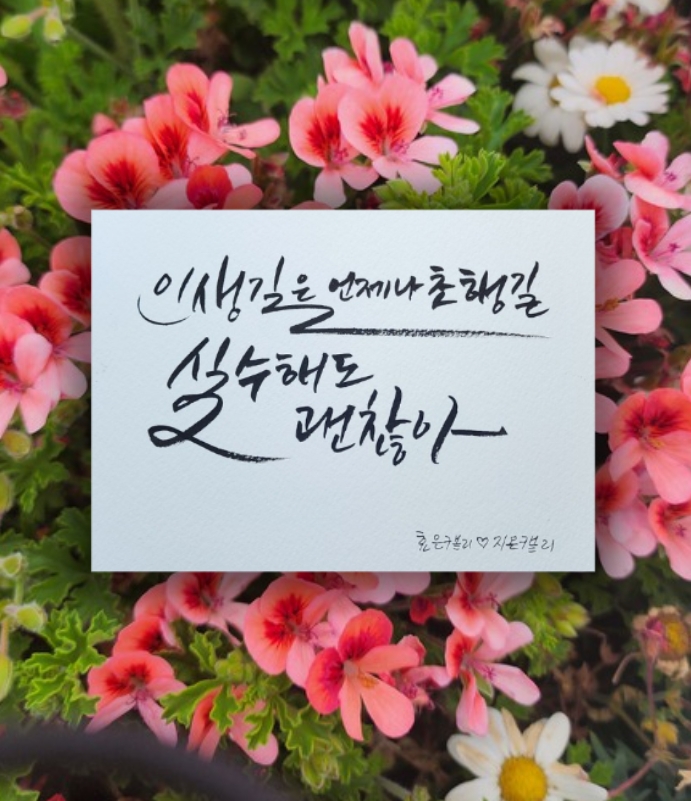 인생길은 언제나 초행길
실수해도
괜찮아
효은캘리♡지은캘리